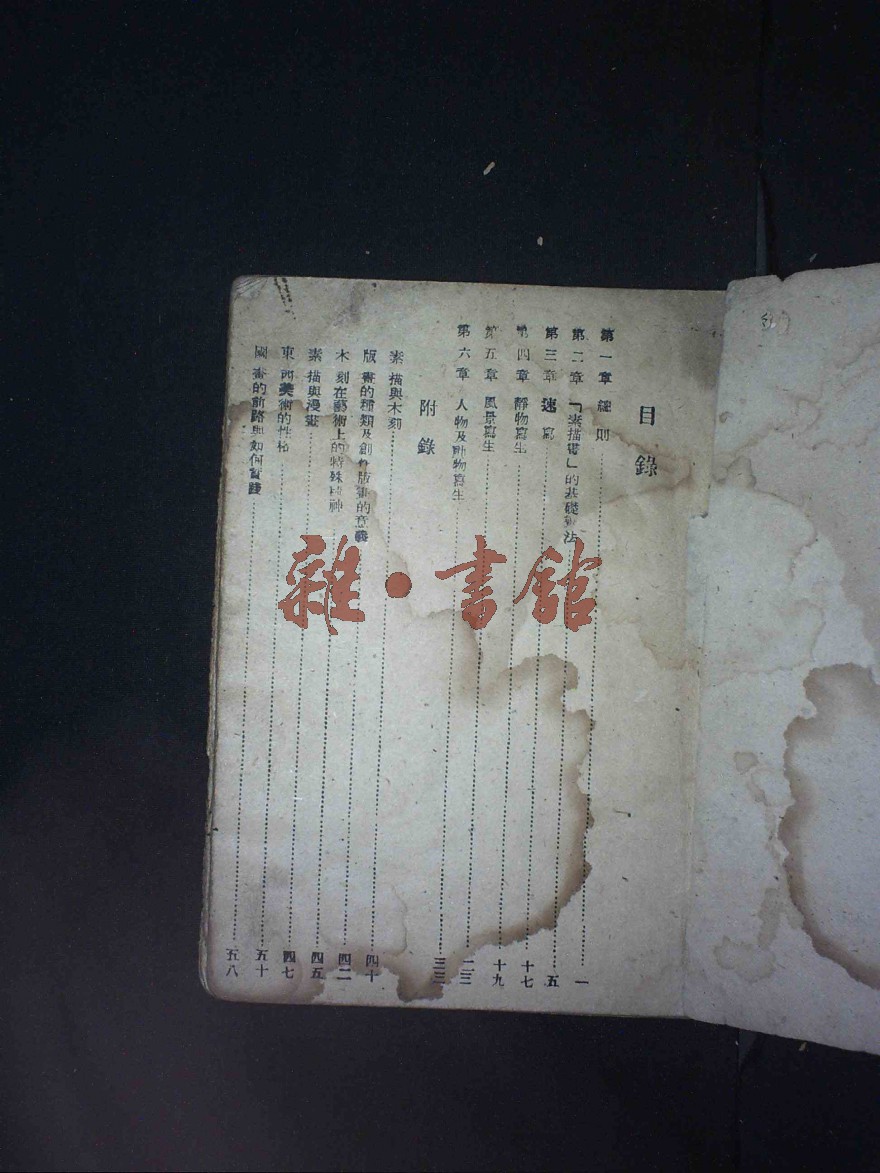 目錄
第一章 總則……一
第二章 「素描畫」的基礎法……五
第三章 速寫……十七
第四章 靜物寫生……十九
第五章 風景寫生……二三
第六章 人物及動物寫生……三三
附錄
素描與木刻……四十
版畫的種類及創作版畫的意義……四二
木刻在藝術上的特殊精神……四五
素描與漫畫……四七
東西美術的性格……五十
國畫的前路與如何實踐……五八
雜·書館